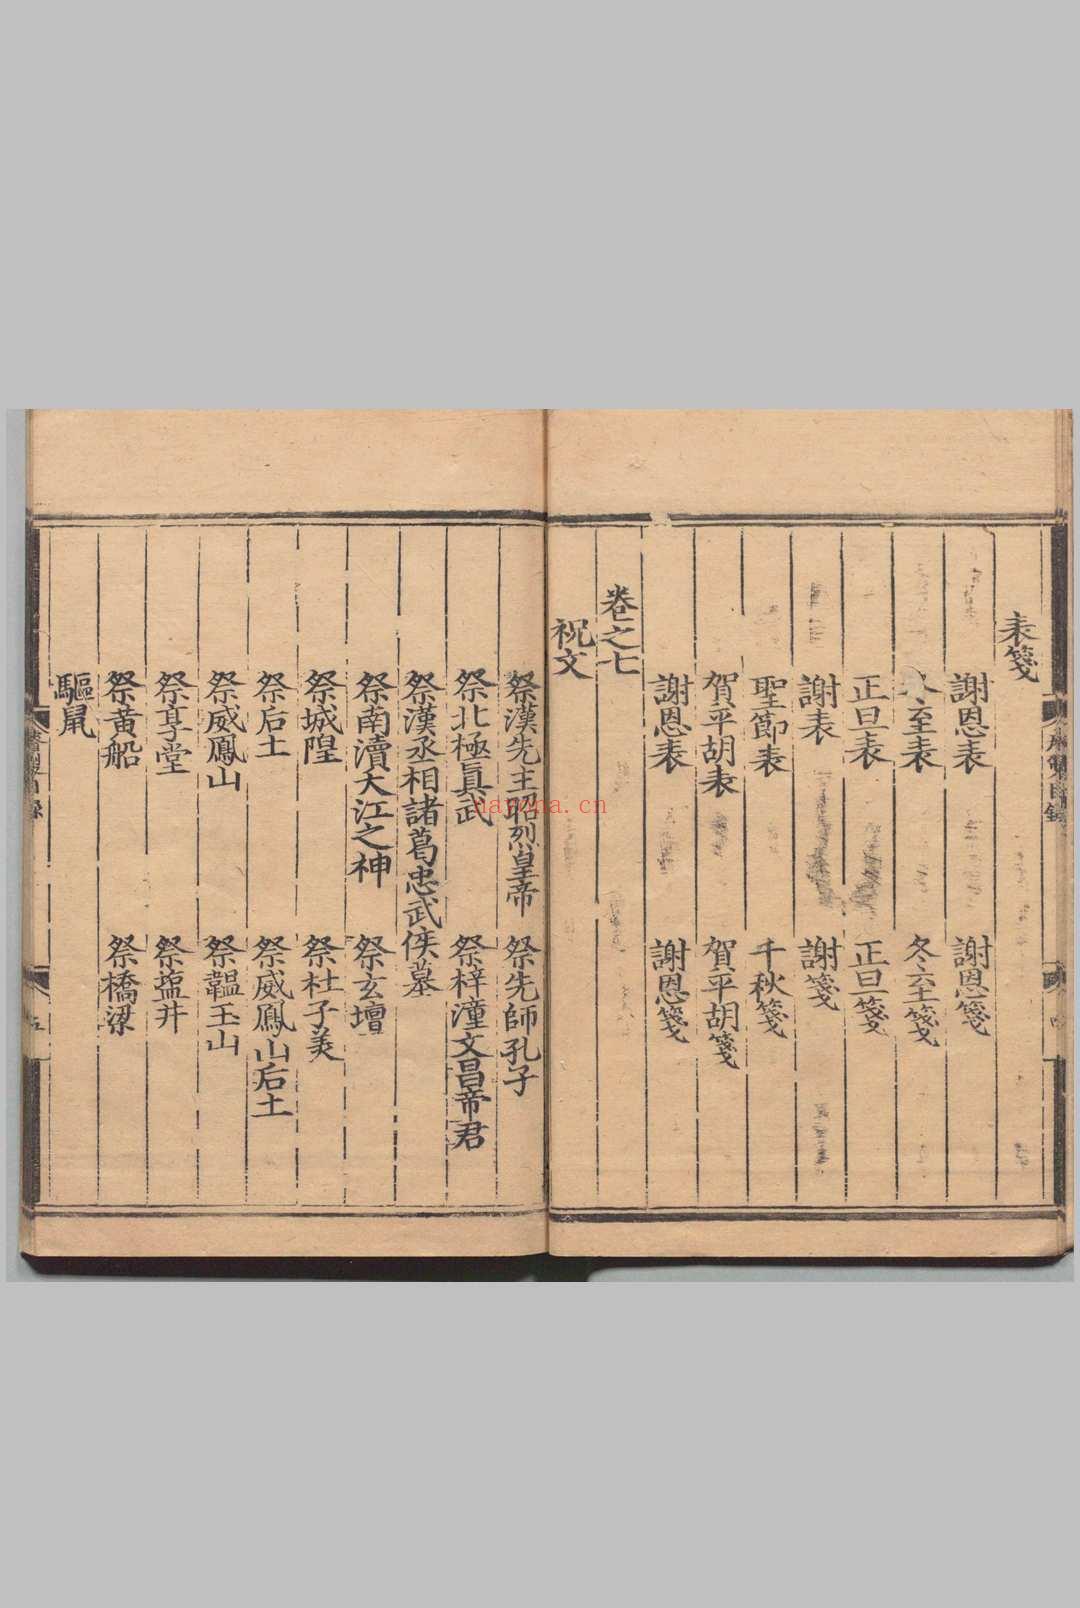 表箋
謝恩表　謝恩箋
冬至表　冬至箋
正旦表　正旦箋
謝表　謝箋
聖節表　千秋箋
賀平胡表　賀平胡箋
謝恩表　謝恩箋
卷之七
祝文
祭漢先主昭烈皇帝　祭先師孔子
祭北極眞武　祭梓潼文昌帝君
祭漢丞相諸葛忠武侯墓
祭南瀆大江之神　祭玄壇
祭城隍　祭杜子美
祭后土　祭威鳳山后土
祭威鳳山　祭韞玉山
祭享堂　祭塩井
祭黄船　祭橋梁
驅鼠
目錄
五
nayona.cn